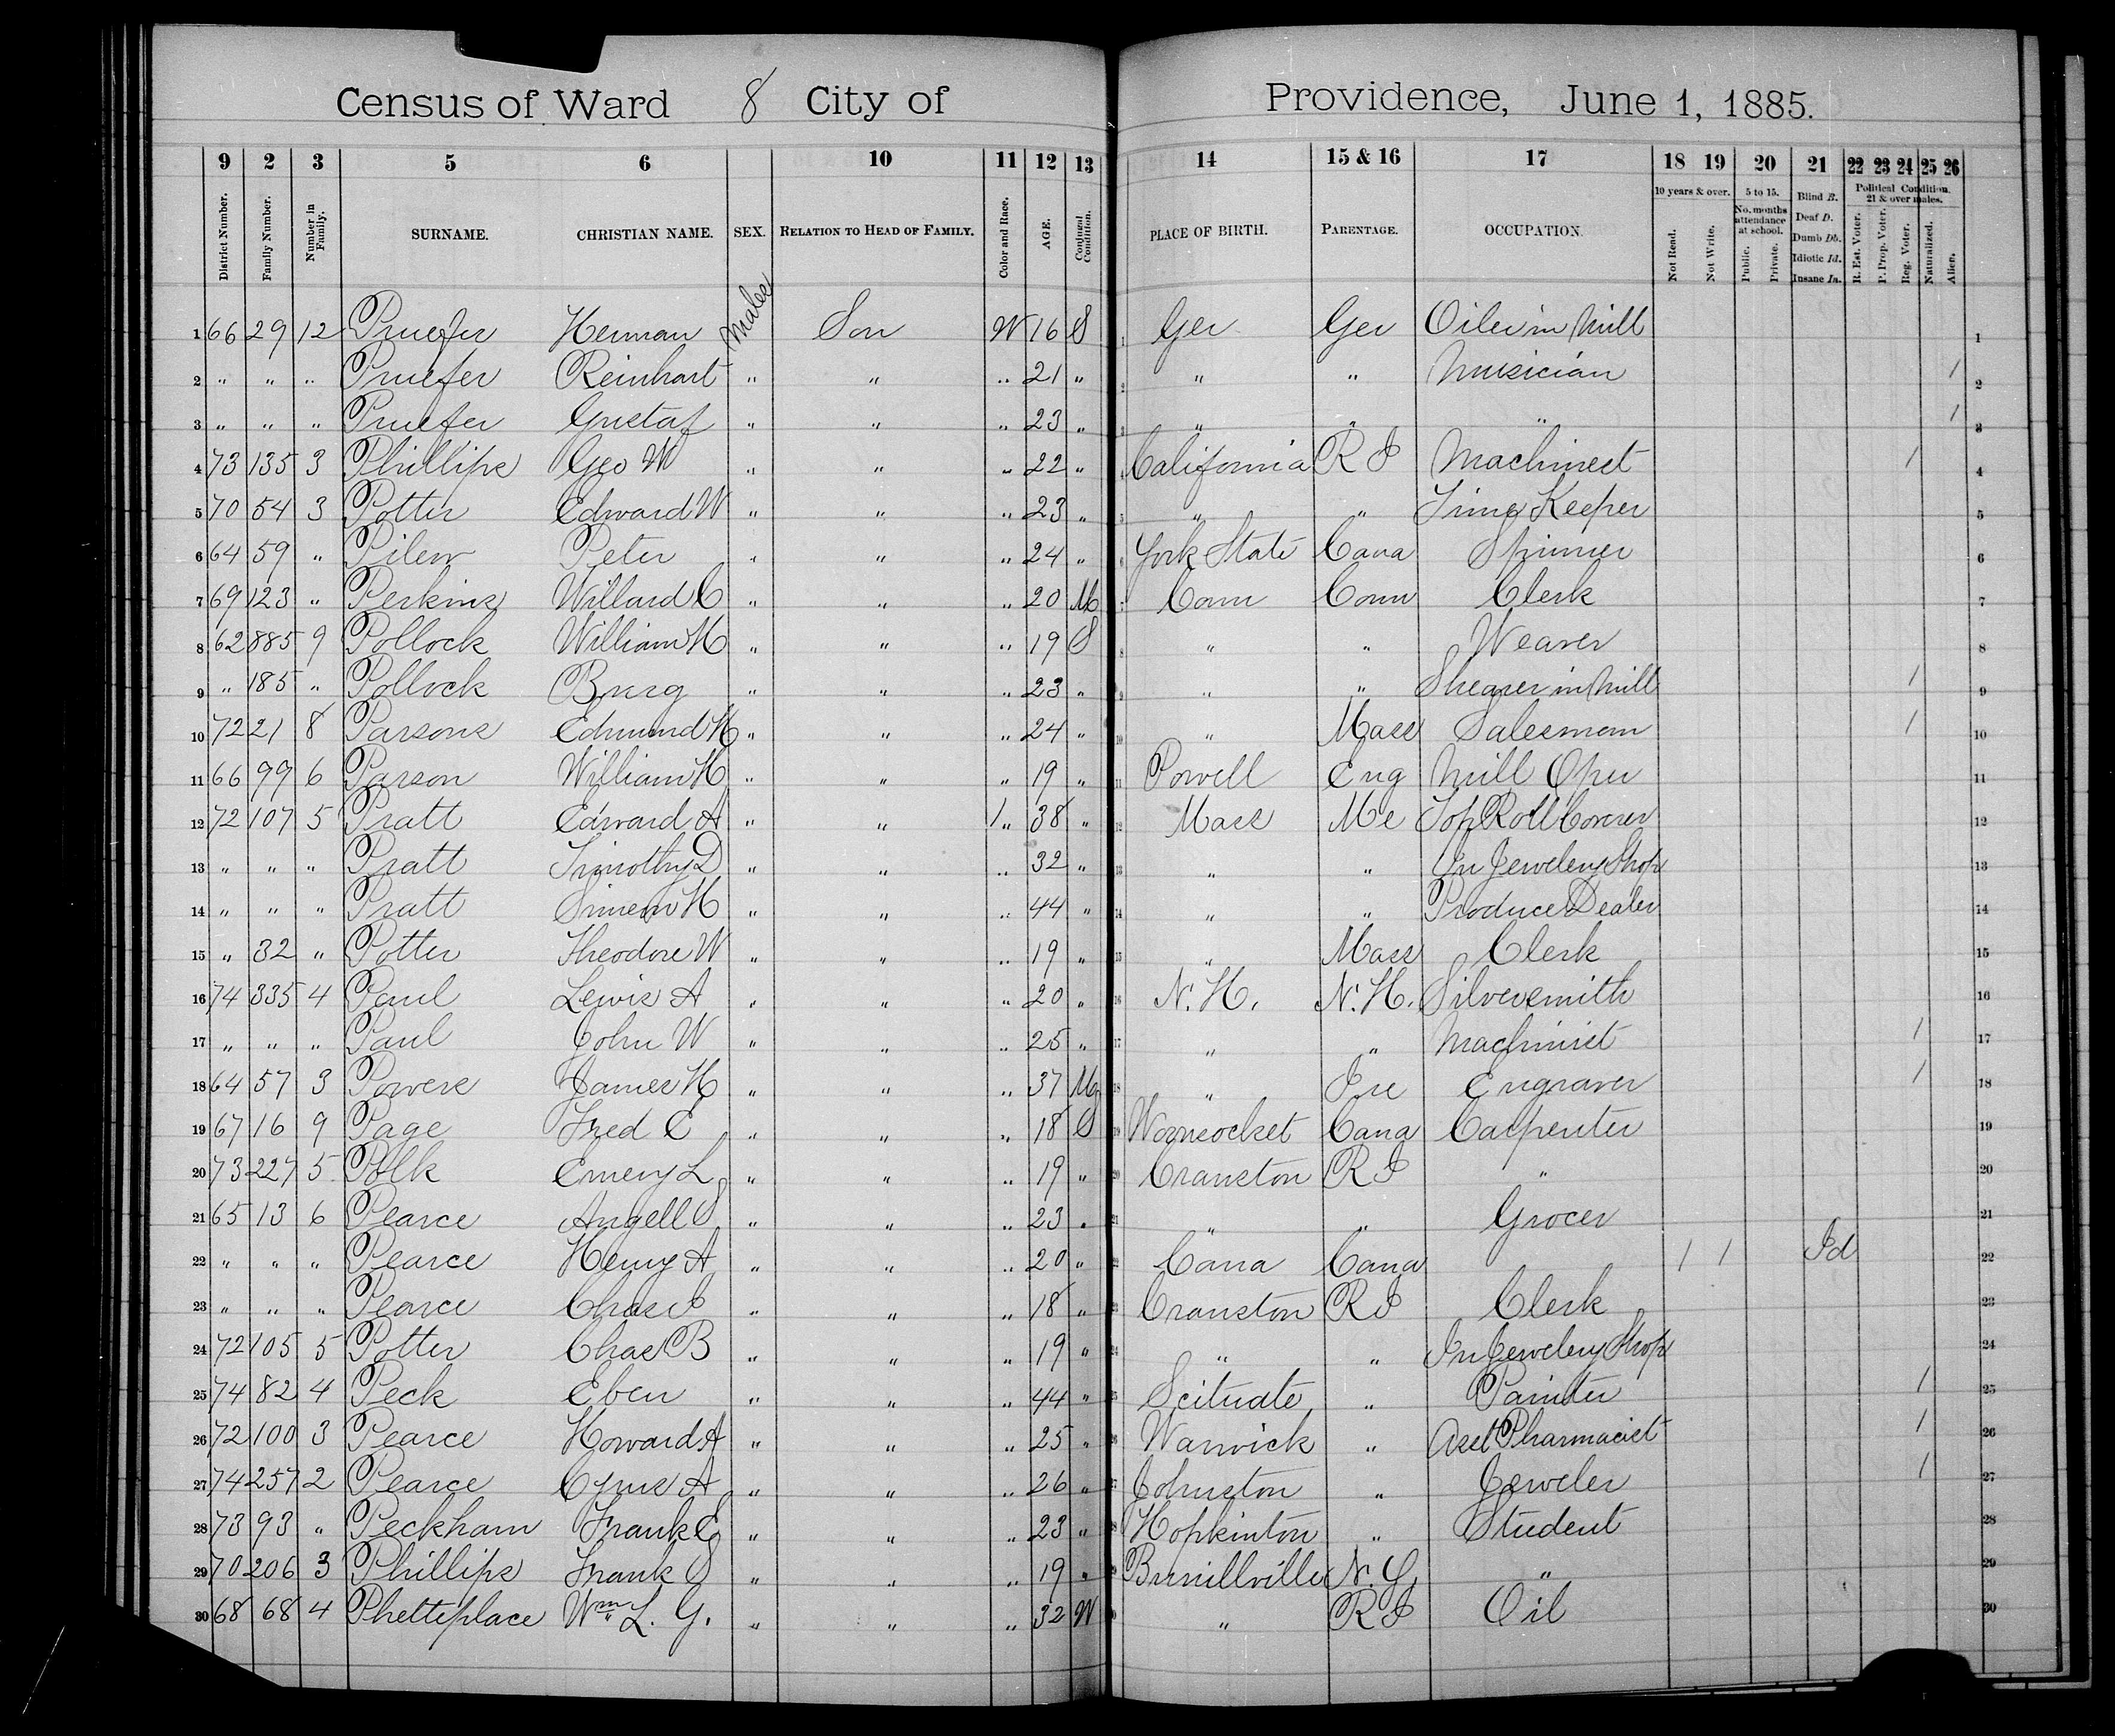 Census of Ward 8 City of Providence, June 1, 1885.
9 2 3 5 6 10 11 12 13 14 15 & 16 17 18 19 20 21 22 23 24 25 26
District Number. Family Number. Number in Family. SURNAME. CHRISTIAN NAME. SEX. RELATION TO HEAD OF FAMILY. Color and Race. AGE. Conjugal Condition. PLACE OF BIRTH. PARENTAGE. OCCUPATION. 10 years & over. Not Read. Not Write. 5 to 15. No. months attendance at school. Public. Private. Blind B. Deaf D. Dumb Db. Idiotic Id. Insane In. Political Condition. 21 & over males. R. Est. Voter. P. Prop. Voter. Reg. Voter. Naturalized. Alien.
1 66 29 12 Pruefer Herman Males Son W 16 S 1 Ger Ger Oiler in Mill 1
2 " " " Pruefer Reinhart " " " 21 " 2 " " Musician 1 2
3 " " " Pruefer Gustaf " " " 23 " 3 " " " 1 3
4 73 135 3 Phillips Geo W " " " 22 " 4 California R I Machinest 1 4
5 70 54 3 Potter Edward W " " " 23 " 5 " " Time Keeper 5
6 64 59 " Peter " " " 24 " 6 York State Cana Spinner 6
7 69 123 " Perkins Willard C " " " 20 M 7 Conn Conn Clerk 7
8 62 885 9 Pollock William H " " " 19 S 8 " " Weaver 8
9 " 185 " Pollock " " " 23 " 9 " " Shearer in Mill 1 9
10 72 21 8 Parsons Edmund H " " " 24 " 10 " Mass Salesman 1 10
11 66 99 6 Parson William H " " " 19 " 11 Powell Eng Mill Oper 11
12 72 107 5 Pratt Edward A " " 1 " 38 " 12 Mass Me Top Roll Coverer 12
13 " " " Pratt Timothy D " " " 32 " 13 " " In Jewelery Shop 13
14 " " " Pratt Simeon H " " " 44 " 14 " " Produce Dealer 14
15 " 32 " Potter Theodore W " " " 19 " 15 " Mass Clerk 15
16 74 335 4 Paul Lewis A " " " 20 " 16 N. H. N. H. Silversmith 16
17 " " " Paul John W " " " 25 " 17 " " Machinist 1 17
18 64 57 3 Powers James H " " " 37 M 18 " Ire Engraver 1 18
19 67 16 9 Page Fred E " " " 18 S 19 Woonsocket Cana Carpenter 19
20 73 227 5 Polk Emery L " " " 19 " 20 Cranston R I " 20
21 65 13 6 Pearce Angell S " " " 23 " 21 " " Grocer 21
22 " " " Pearce Henry A " " " 20 " 22 Cana Cana 1 1 Id 22
23 " " " Pearce Chas " " " 18 " 23 Cranston R I Clerk 23
24 72 105 5 Potter Chas B " " " 19 " 24 " " In Jewelery Shop 24
25 74 82 4 Peck Eben " " " 44 " 25 Scituate " Painter 1 25
26 72 100 3 Pearce Howard A " " " 25 " 26 Warwick " Asst Pharmacist 1 26
27 74 257 2 Pearce Cyrus A " " " 26 " 27 Johnston " Jeweler 1 27
28 73 93 " Peckham Frank E " " " 23 " 28 Hopkinton " Student 28
29 70 206 3 Phillips Frank S " " " 19 " 29 Burrillville N. Y. " 29
30 68 68 4 Phetteplace Wm L. G. " " " 32 W 30 " R I Oil 30